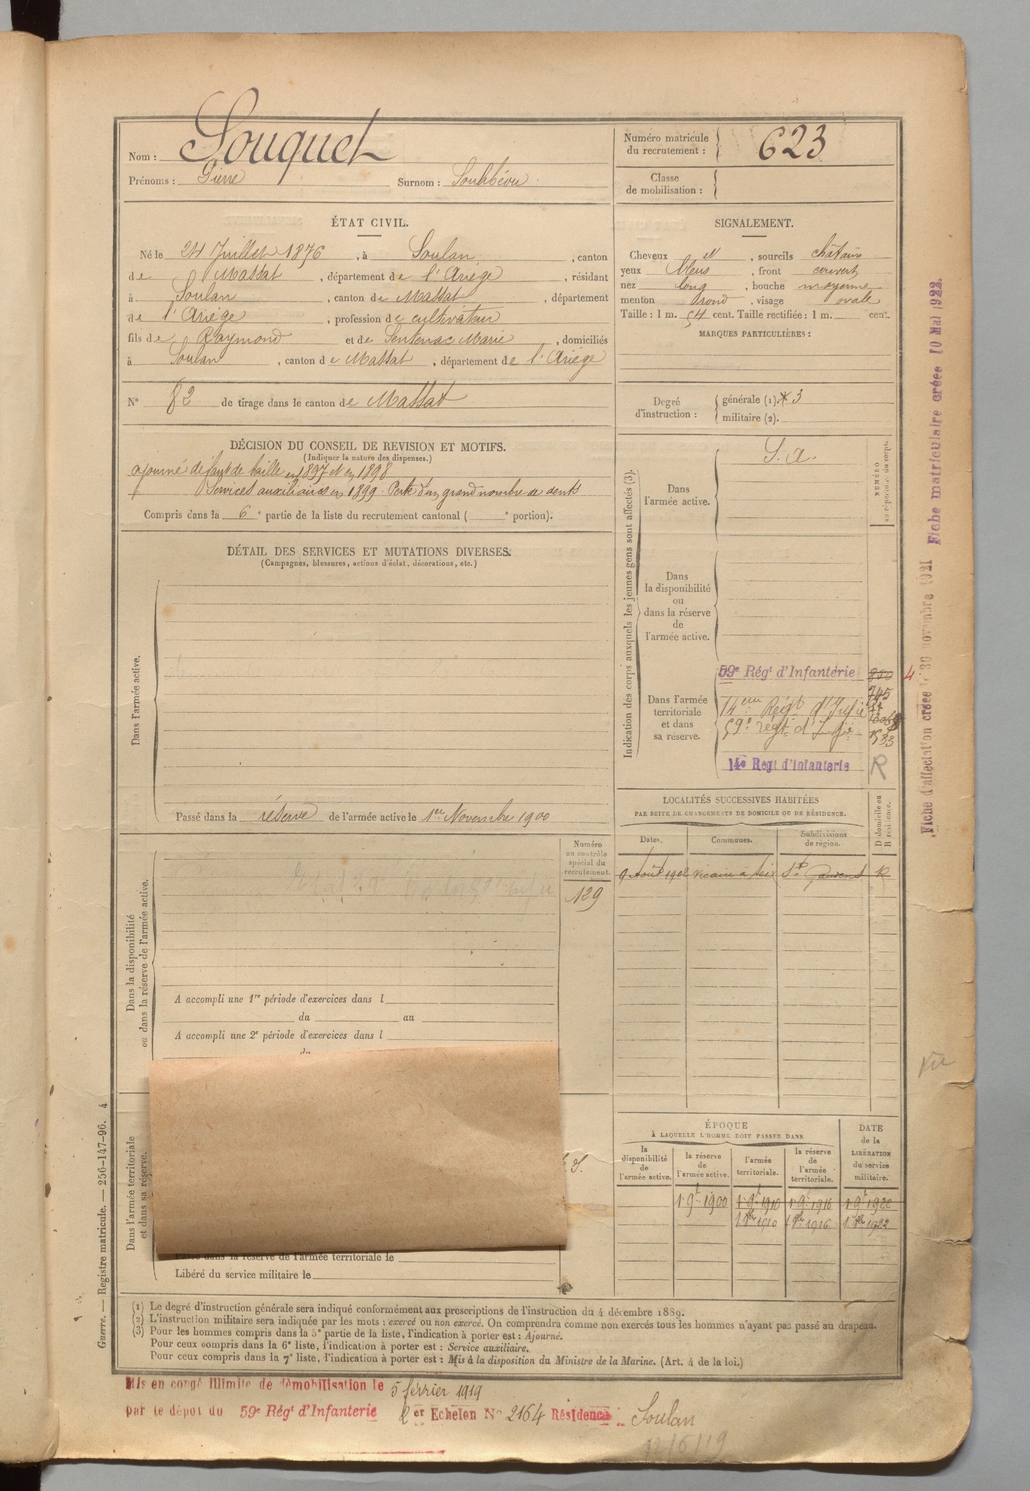 Nom : Souquet
Prénoms : Pierre Surnom :
Numéro matricule du recrutement : 623
Classe de mobilisation :
ÉTAT CIVIL.
Né le 24 Juillet 1876, à Soulan, canton
de Massat, département de l'Ariège, résidant
à Soulan, canton de Massat, département
de l'Ariège, profession de cultivateur
fils de Raymond et de Sentenac Marie, domiciliés
à Soulan, canton de Massat, département de l'Ariège
N° 82 de tirage dans le canton de Massat
SIGNALEMENT.
Cheveux et, sourcils châtains
yeux bleus, front couvert
nez long, bouche moyenne
menton rond, visage ovale
Taille : 1 m. 54 cent. Taille rectifiée : 1 m. cent.
MARQUES PARTICULIÈRES :
Degré d'instruction : générale (1). 3
militaire (2).
DÉCISION DU CONSEIL DE REVISION ET MOTIFS.
(Indiquer la nature des dispenses.)
ajourné défaut de taille en 1897 et en 1898
Services auxiliaires en 1899. Perte d'un grand nombre de dents
Compris dans la 6e partie de la liste du recrutement cantonal ( e portion).
DÉTAIL DES SERVICES ET MUTATIONS DIVERSES.
(Campagnes, blessures, actions d'éclat, décorations, etc.)
Dans l'armée active.
Passé dans la réserve de l'armée active le 1er Novembre 1900
Indication des corps auxquels les jeunes gens sont affectés (3).
NUMÉRO
au répertoire du corps.
Dans l'armée active.
S. A.
Dans la disponibilité ou dans la réserve de l'armée active.
Dans l'armée territoriale et dans sa réserve.
59e Régt d'Infanterie
14eme Régt d'Infie
59e régt d'Infie
14e Regt d'Infanterie
R
LOCALITÉS SUCCESSIVES HABITÉES
PAR SUITE DE CHANGEMENTS DE DOMICILE OU DE RÉSIDENCE.
Dates. Communes. Subdivisions de région. D domicile ou R résidence.
St Gaudens R
Dans la disponibilité ou dans la réserve de l'armée active.
Numéro au contrôle spécial du recrutement.
129
A accompli une 1re période d'exercices dans l
du au
A accompli une 2e période d'exercices dans l
du
Dans l'armée territoriale et dans sa réserve.
Passé dans la réserve de l'armée territoriale le
Libéré du service militaire le
ÉPOQUE
À LAQUELLE L'HOMME DOIT PASSER DANS
la disponibilité de l'armée active. la réserve de l'armée active. l'armée territoriale. la réserve de l'armée territoriale. DATE de la LIBÉRATION du service militaire.
1 9e 1900 1 9e 1910 1 9e 1916 1 9e 1922
(1) Le degré d'instruction générale sera indiqué conformément aux prescriptions de l'instruction du 4 décembre 1889.
(2) L'instruction militaire sera indiquée par les mots : exercé ou non exercé. On comprendra comme non exercés tous les hommes n'ayant pas passé au drapeau.
(3) Pour les hommes compris dans la 5e partie de la liste, l'indication à porter est : Ajourné.
Pour ceux compris dans la 6e liste, l'indication à porter est : Service auxiliaire.
Pour ceux compris dans la 7e liste, l'indication à porter est : Mis à la disposition du Ministre de la Marine. (Art. 4 de la loi.)
Mis en congé illimité de démobilisation le 5 février 1919
par le dépôt du 59e Régt d'Infanterie er Echelon N° 2164 Résidence : Soulan
12/6/19
Guerre. — Registre matricule. — 256-147-96. 4
Fiche d'affectation créée le 30 novembre 1921 Fiche matriculaire créée 10 Mai 1922.
Vu